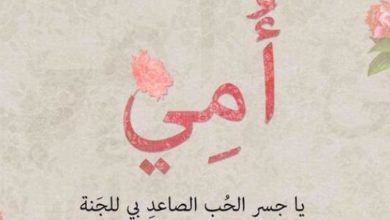 أُمِي
يا جسر الحُب الصاعدِ بي للجَنة